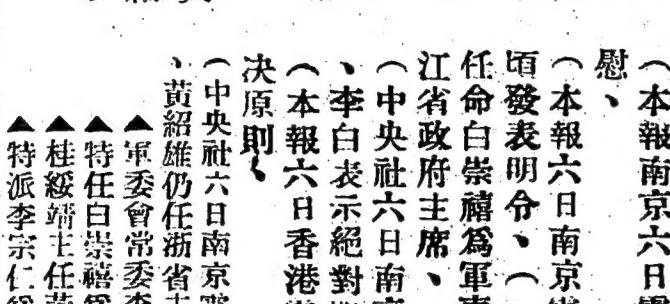 （本報南京六日
慰、
（本報六日南京
頃發表明令、（
任命白崇禧爲軍
江省政府主席、
（中央社六日南
、李白表示絕對
（本報六日香港
决原則、
（中央社六日南京
、黃紹雄仍任浙省
▲軍委會常委李
▲特任白崇禧
▲桂綏靖主任
▲特派李宗仁